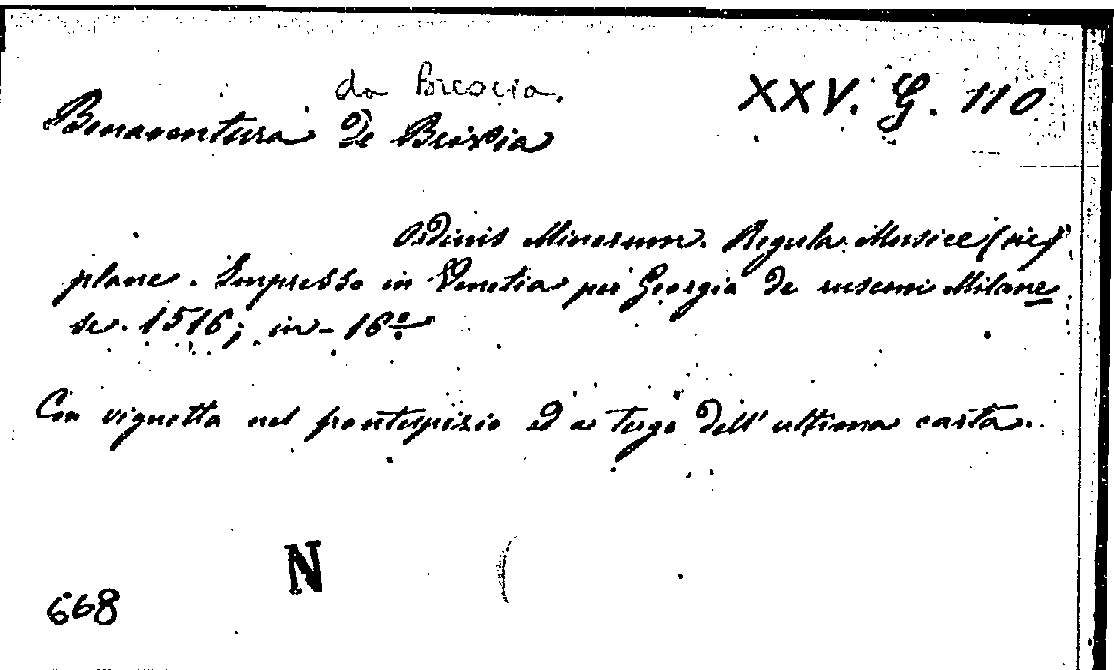 da Brescia.
XXV. G. 110
Bonaventura de Brixia
Ordinis Minorum. Regula Musice (sic)
plane. Impresso in Venetia per Georgio de rusconi Milane
se. 1516; in-16º
Con vignetta nel frontespizio ed a tergo dell'ultima carta.
N
668